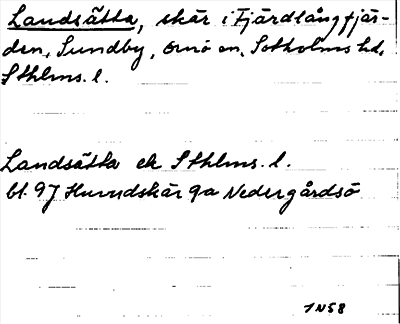 Landsätta, skär i Fjärdlångfjär-
den, Sundby, Ornö sn, Sotholms hd,
Sthlms. l.
Landsätta ek Sthlms. l.
bl. 97 Huvudskär 9a Nedergårdsö
1N58